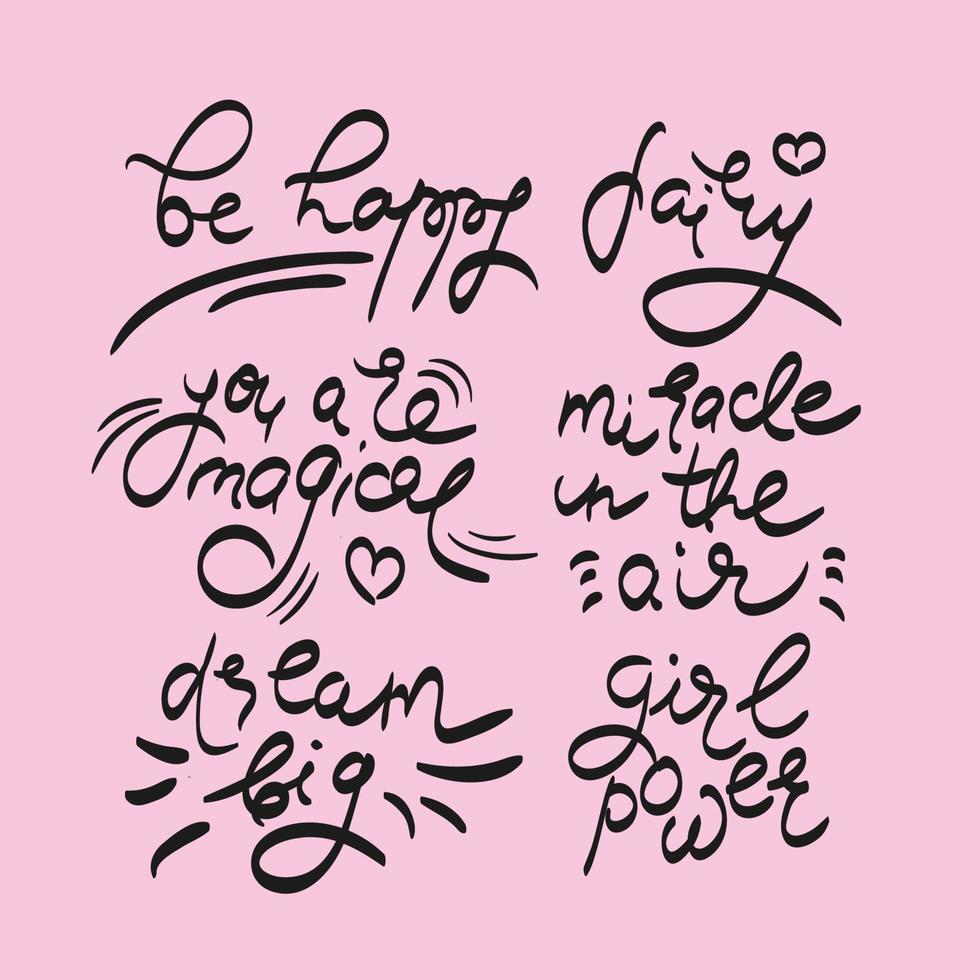 be happy
fairy
you are
magical
miracle
in the
air
dream
big
girl
power